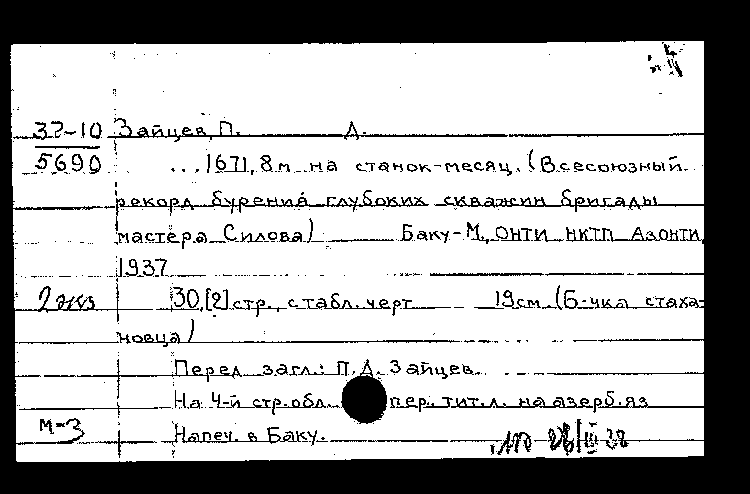 37-10 Зайцев, П. Д.
5690 ...1671,8м на станок-месяц. (Всесоюзный
рекорд бурения глубоких скважин бригады
мастера Силова) Баку-М., ОНТИ НКТП Азонти,
1937
2 экз 30,[2] стр., с табл. черт 19см. (Б-чка стаха-
новца)
Перед загл.: П.Д. Зайцев.
На 4-й стр. обл. пер. тит. л. на азерб. яз
М-З Напеч. в Баку.
28/III 38